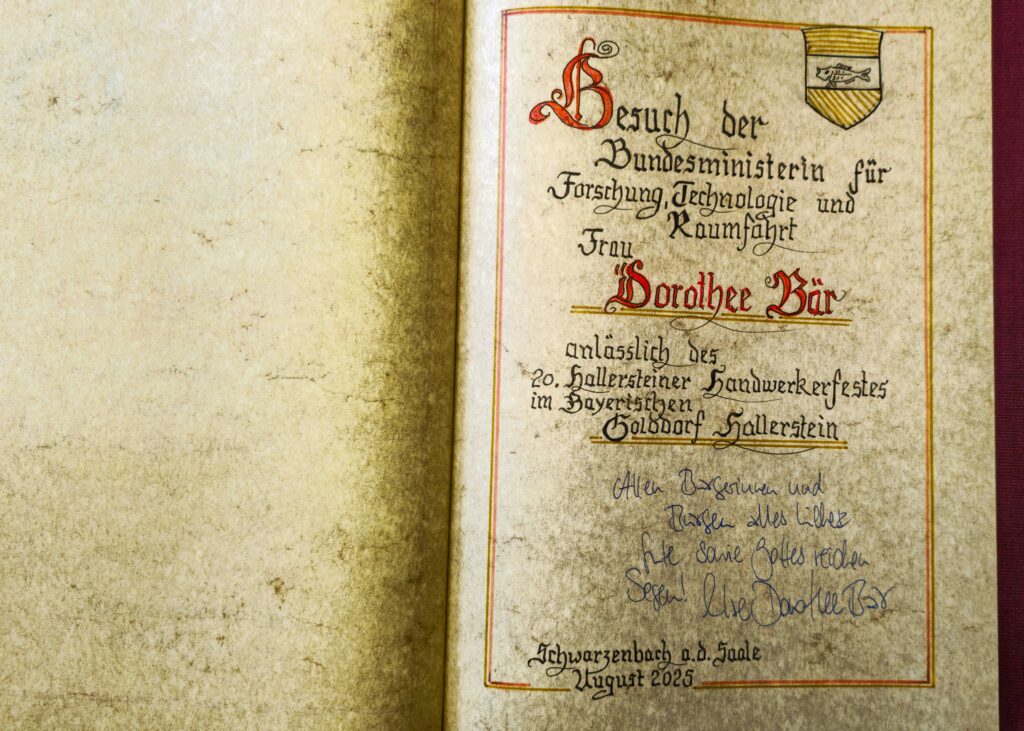 Besuch der
Bundesministerin für
Forschung, Technologie und
Raumfahrt
Frau
Dorothee Bär
anlässlich des
20. Hallersteiner Handwerkerfestes
im Bayerischen
Golddorf Hallerstein
Allen Bürgerinnen und
Bürgern alles
Gute sowie Gottes reichen
Segen! Dorothee Bär
Schwarzenbach a.d. Saale
August 2025